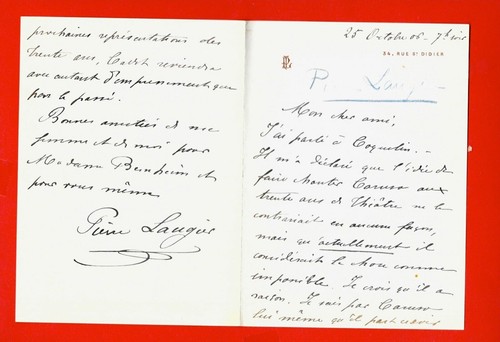 prochaines représentations des
trente ans, Cadet reviendra
avec autant d'empressement que
par le passé.
Bonnes amitiés de ma
femme et de moi pour
Madame Bernheim et
pour vous même
Pierre Laugier
25 Octobre 06 - 7h soir
34, RUE ST DIDIER
Mon cher ami,
J'ai parlé à Coquelin. -
Il m'a déclaré que l'idée de
faire chanter Caruso aux
trente ans de Théâtre ne le
contrariait en aucune façon,
mais qu'actuellement il
considérait la chose comme
impossible. Je crois qu'il a
raison. Je sais par Caruso
lui même qu'il part